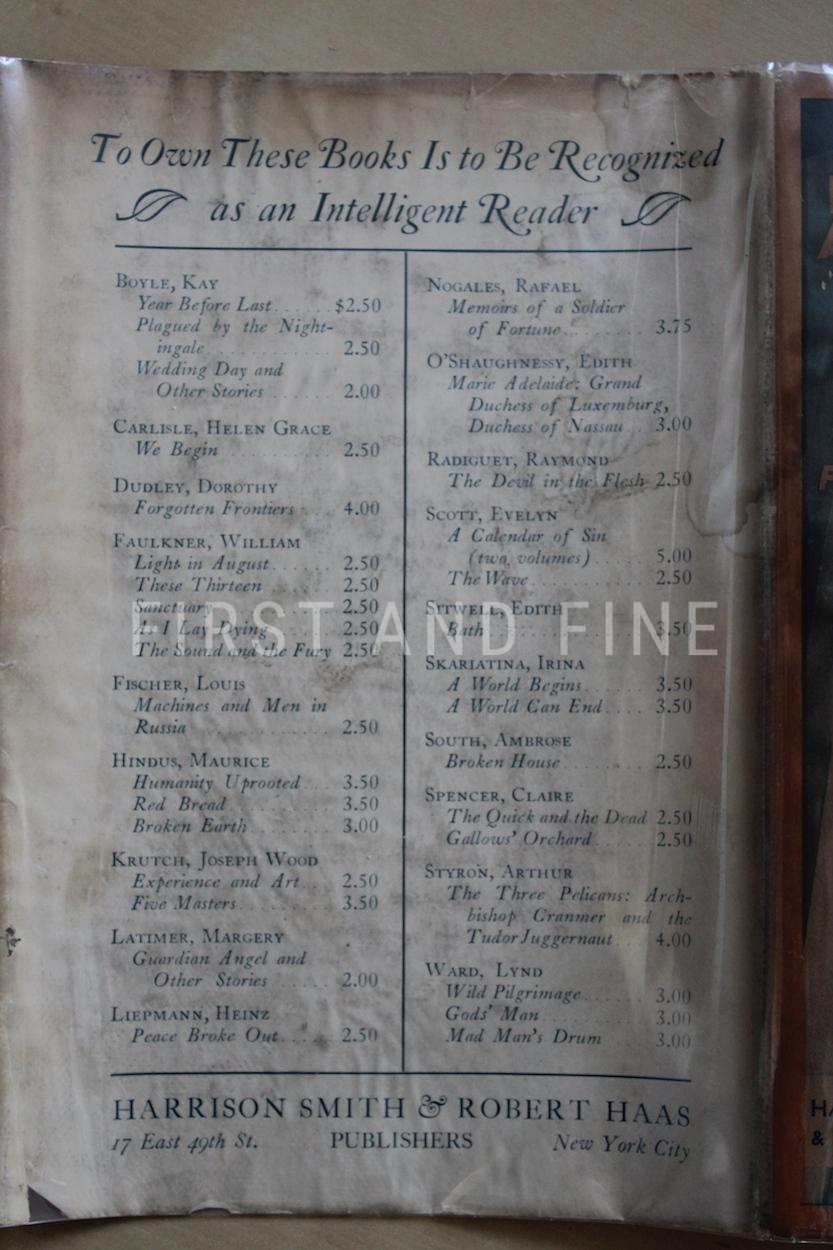 To Own These Books Is to Be Recognized
as an Intelligent Reader
BOYLE, KAY
Year Before Last ...... $2.50
Plagued by the Night-
ingale .............. 2.50
Wedding Day and
Other Stories ........ 2.00
CARLISLE, HELEN GRACE
We Begin ............ 2.50
DUDLEY, DOROTHY
Forgotten Frontiers .... 4.00
FAULKNER, WILLIAM
Light in August ....... 2.50
These Thirteen ........ 2.50
Sanctuary ............ 2.50
As I Lay Dying ........ 2.50
The Sound and the Fury 2.50
FISCHER, LOUIS
Machines and Men in
Russia .............. 2.50
HINDUS, MAURICE
Humanity Uprooted ... 3.50
Red Bread ........... 3.50
Broken Earth ......... 3.00
KRUTCH, JOSEPH WOOD
Experience and Art ... 2.50
Five Masters .......... 3.50
LATIMER, MARGERY
Guardian Angel and
Other Stories ....... 2.00
LIEPMANN, HEINZ
Peace Broke Out ...... 2.50
NOGALES, RAFAEL
Memoirs of a Soldier
of Fortune .......... 3.75
O'SHAUGHNESSY, EDITH
Marie Adelaide: Grand
Duchess of Luxemburg,
Duchess of Nassau .. 3.00
RADIGUET, RAYMOND
The Devil in the Flesh 2.50
SCOTT, EVELYN
A Calendar of Sin
(two volumes) ...... 5.00
The Wave ............ 2.50
SITWELL, EDITH
Bath ................ 3.50
SKARIATINA, IRINA
A World Begins ....... 3.50
A World Can End ..... 3.50
SOUTH, AMBROSE
Broken House ......... 2.50
SPENCER, CLAIRE
The Quick and the Dead 2.50
Gallows' Orchard ...... 2.50
STYRON, ARTHUR
The Three Pelicans: Arch-
bishop Cranmer and the
Tudor Juggernaut .... 4.00
WARD, LYND
Wild Pilgrimage ....... 3.00
Gods' Man ........... 3.00
Mad Man's Drum ..... 3.00
HARRISON SMITH & ROBERT HAAS
17 East 49th St. PUBLISHERS New York City
FIRST AND FINE